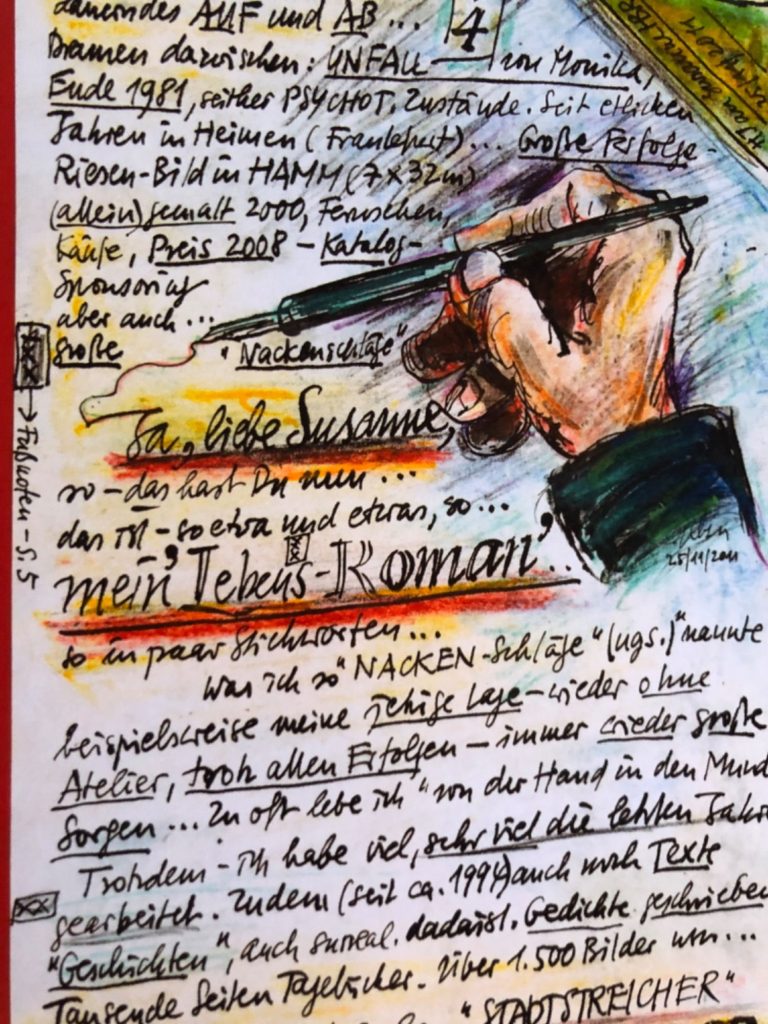 dauerndes AUF und AB ... 4
Dramen dazwischen: UNFALL von Monika,
Ende 1981, seither PSYCHOT. Zustände. Seit etlichen
Jahren in Heimen (Frankfurt) ... Große Erfolge -
Riesen-Bild in HAMM (7 x 32m)
(allein) gemalt 2000, Fernsehen,
Käufe, Preis 2008 - Katalog-
Sponsoring
aber auch ...
große "Nackenschläge"
Ja, liebe Susanne,
so - das hast Du nun ...
das ist - so etwa und etwas, so ...
mein 'Lebens-Roman' ...
25/11/2011
so in paar Stichworten ...
Was ich so "NACKEN-Schläge" (ugs.) nannte
beispielsweise meine jetzige Lage - wieder ohne
Atelier, trotz allen Erfolgen - immer wieder große
Sorgen ... Zu oft lebe ich "von der Hand in den Mund
Trotzdem - ich habe viel, sehr viel die letzten Jahre
gearbeitet. Zudem (seit ca. 1994) auch noch Texte
"Geschichten", auch surreal. dadaist. Gedichte geschrieben
Tausende Seiten Tagebücher. Über 1.500 Bilder usw...
"STADTSTREICHER"
XX
→ Fußnoten - S. 5
XX